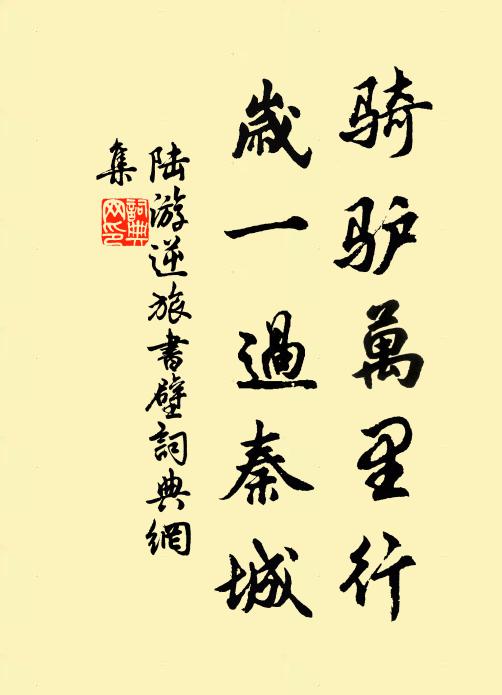 骑驴萬里行
岁一過秦城
陆游逆旅書壁詞典網
集
詞典网印